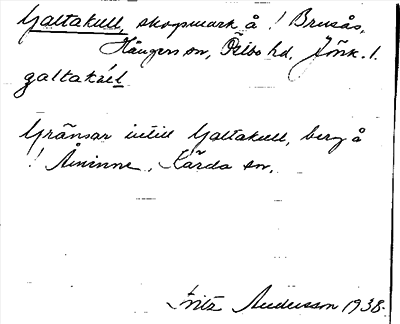 Galtakull, skogsmark å ! Brusås,
Hångers sn, Östbo hd. Jönk. l.
galtakúl
Gränsar intill Galtakull, berg å
! Åminne, Kärda sn.
Fritz Andersson 1938.